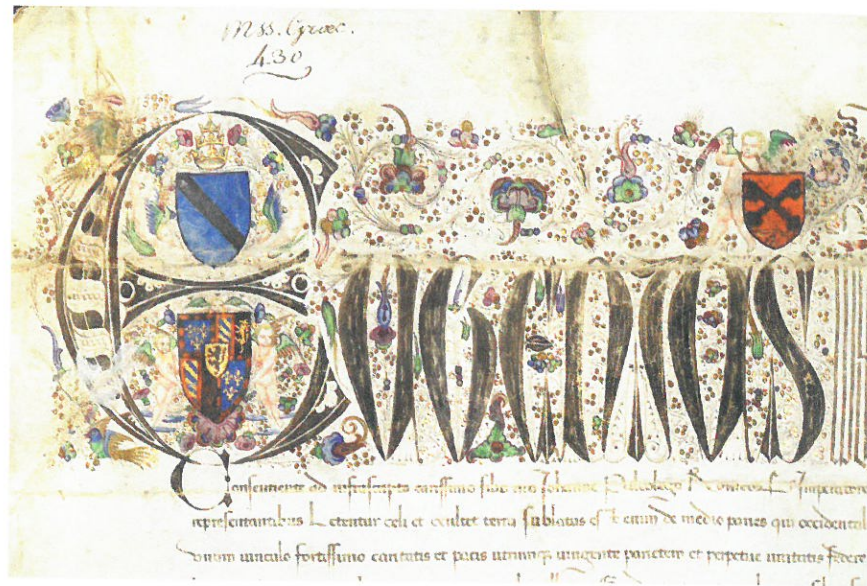 Mss. Græc.
430
EUGENIUS
Consentiente ad infrascripta carissimo filio Johanne Paleologo Romeorum Imperatore
representantibus Letentur celi et exultet terra Sublatus est enim de medio paries qui occidental
vinculo fortissimo caritatis et pacis utrumque iungente parietem et perpetue unitatis federe